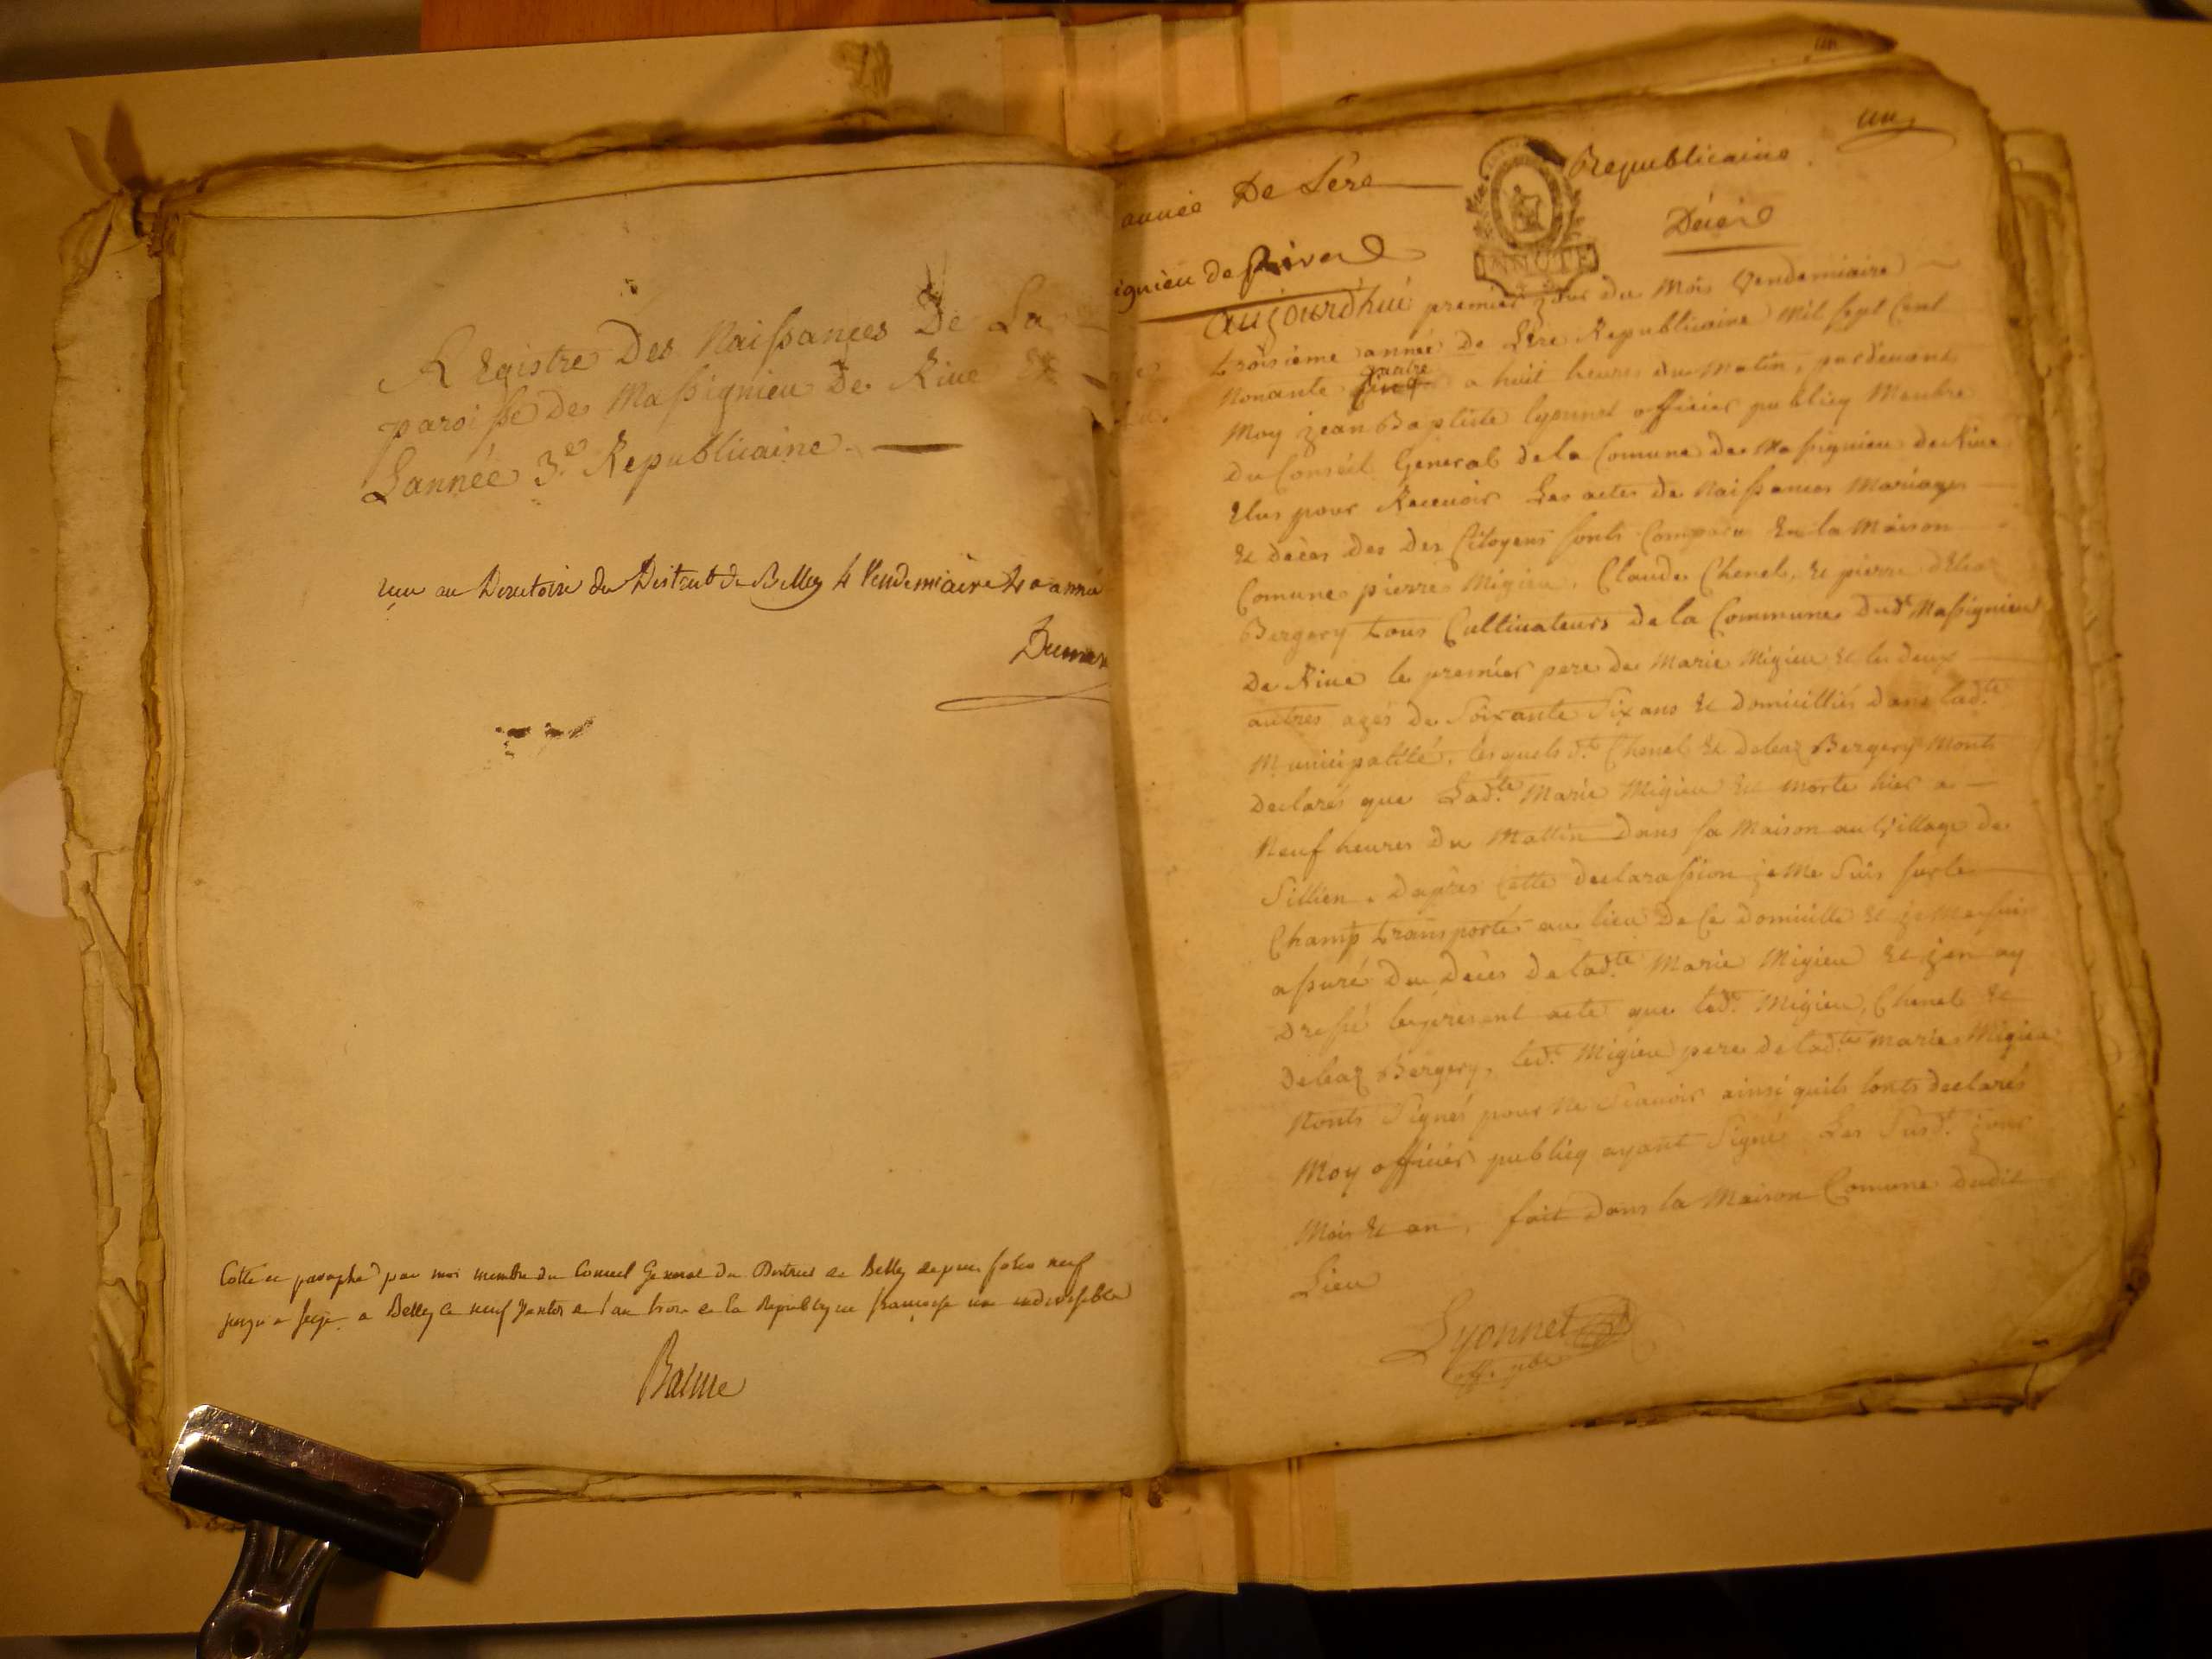 Registre Des Naissances De La
paroisse De Massignieu De Rive Et
Lannée 3.e Republicaine.
vu au Directoire du District de Belley 4 Vendemiaire 4e anné
Cotté et paraphé par moi membre du Conseil General du District de Belley depuis folio neuf
jusqu'a seize a Belley le neuf Ventos de l'an trois de la Republique francaise une indivisible
Balme
un
année De Lere Republicaine
ignieu de Rive Décé
aujourd'hui premier jour du Mois Vendemiaire
troisieme année De Lére Republicaine Mil sept Cent
Nonante quatre a huit heures du Matin, pardevant
Moy jean Baptiste lyonnet officier publicq Membre
Du Conseil General de la Comune de Massignieu de Rive
Elus pour Recevoir Les actes de Naissances Mariages
Et Décès des des Citoyens sonts Comparu En la Maison
Comune pierre Migieu, Claude Chenel, Et pierre Deleaz
Bergery tous Cultivateurs De la Commune Dud.t Massignieu
De Rive le premier pere de Marie Migieu Et les deux
autres agés de Soixante Six ans Et Domicilliés dans lad.te
Municipalité, lesquels d.ts Chenel Et Deleaz Bergery Monts
Declarés que Lad.te Marie Migieu Est morte hier a
Neuf heures Du Mattin Dans sa Maison au Village de
Sillien. Dapres Cette declarassion je Me Suis sur le
Champ transportés au lieu De Ce Domicille Et je Me suis
assuré Du Décès De lad.te Marie Migieu Et jen ay
Dressé le present acte que led.t Migieu, Chenel Et
Deleaz Bergery, led.t Migieu pere de lad.te Marie Migieu
Nonts Signés pour Ne Scavoir ainsi quils lonts declarés
Moy officier publicq ayant Signé Les Susd.t jour
Mois Et an, fait Dans la Maison Comune dudit
Lieu
Lyonnet